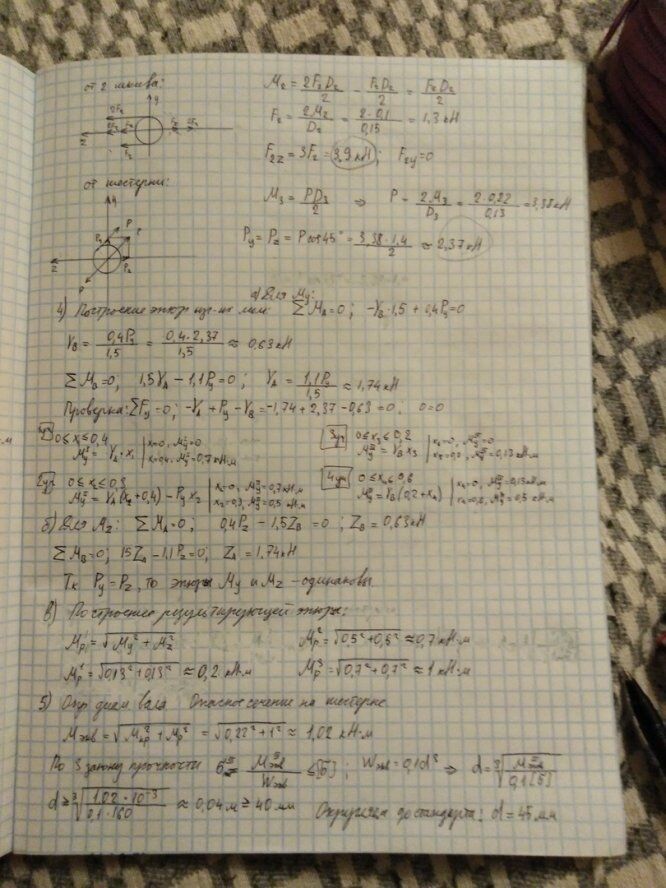 от 2 шкива:
M₂ = 2F₂D₂/2 − F₂D₂/2 = F₂D₂/2
F₂ = 2M₂/D₂ = 2·0,1/0,15 = 1,3 кН
F₂z = 3F₂ = 3,9 кН; F₂y = 0
от шестерни:
M₃ = PD₃/2 ⇒ P = 2M₃/D₃ = 2·0,22/0,13 = 3,38 кН
Py = Pz = P cos45° = 3,38·1,4/2 ≈ 2,37 кН
4) Построение эпюр изг-их мом: а) Для My: ΣMA = 0; −YB·1,5 + 0,4Py = 0
YB = 0,4Py/1,5 = 0,4·2,37/1,5 ≈ 0,63 кН
ΣMB = 0; 1,5YA − 1,1Py = 0; YA = 1,1Py/1,5 ≈ 1,74 кН
Проверка: ΣFy = 0; −YA + Py − YB = −1,74 + 2,37 − 0,63 = 0; 0 = 0
1уч 0 ≤ x₁ ≤ 0,4
My = YA·x₁ | x=0, My=0
x=0,4, My=0,7 кН·м
3уч 0 ≤ x₃ ≤ 0,2
My = YB x₃ | x₃=0, My=0
My=0,13 кН·м
2уч 0 ≤ x₂ ≤ 0,3
My = YA(x₂+0,4) − Py x₂ | x₂=0, My=0,7 кН·м
x₂=0,3, My=0,5 кН·м
4уч 0 ≤ x₄ ≤ 0,6
My = YB(0,2+x₄) | x₄=0, My=0,13 кН·м
My=0,5 кН·м
б) Для Mz: ΣMA = 0; 0,4Pz − 1,5ZB = 0; ZB = 0,63 кН
ΣMB = 0; 15ZA − 1,1Pz = 0; ZA = 1,74 кН
Т.к. Py = Pz, то эпюры My и Mz – одинаковы.
в) Построение результирующей эпюры:
Mр = √(My² + Mz²) Mр² = √(0,5² + 0,5²) ≈ 0,7 кН·м
Mр¹ = √(0,13² + 0,13²) ≈ 0,2 кН·м Mр³ = √(0,7² + 0,7²) ≈ 1 кН·м
5) Опр диам вала Опасное сечение на шестерне
Mэкв = √(Mкр² + Mр²) = √(0,22² + 1²) ≈ 1,02 кН·м
По 3 закону прочности σ = Mэкв/Wэкв ≤ [σ]; Wэкв = 0,1d³ ⇒ d = ³√(Mэкв/0,1[σ])
d ≥ ³√(1,02·10⁻³/0,1·160) ≈ 0,04 м ≥ 40 мм Округляем до стандарта: d = 45 мм